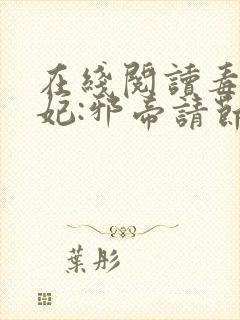 在綫閱讀毒
妃:邪帝請節
葉彤